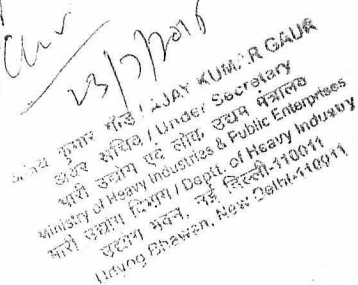 23/7/2015
अजय कुमार गौड़ / AJAY KUMAR GAUR
अवर सचिव / Under Secretary
भारी उद्योग एवं लोक उद्यम मंत्रालय
Ministry of Heavy Industries & Public Enterprises
भारी उद्योग विभाग / Deptt. of Heavy Industry
उद्योग भवन, नई दिल्ली-110011
Udyog Bhawan, New Delhi-110011